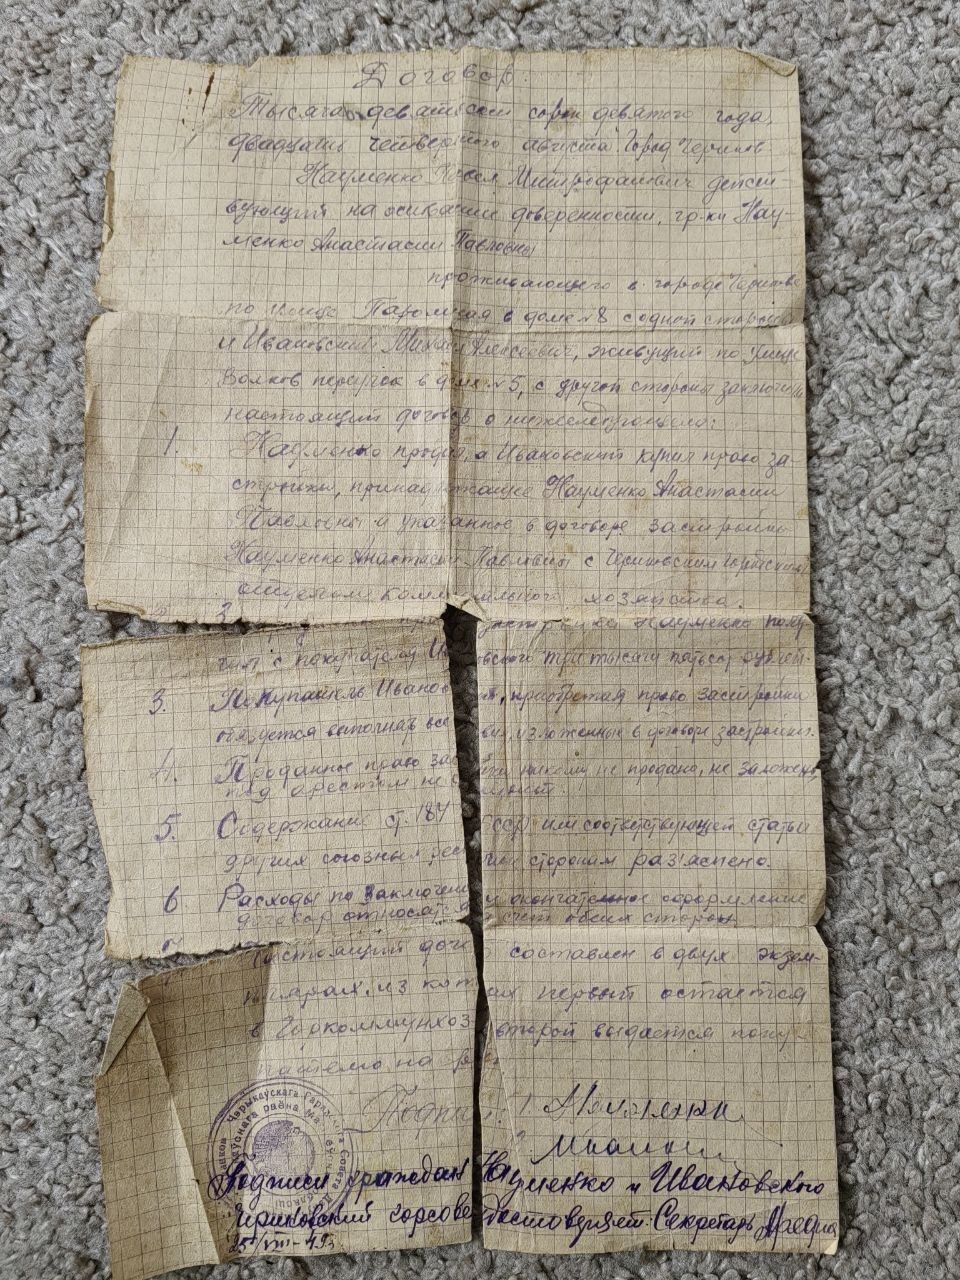 Договор.
Тысяча девятьсот сорок девятого года,
двадцать четвертого августа. Город Чериков
Науменко Павел Митрофанович дейст
вующий на основании доверенности, гр-ки Нау-
менко Анастасии Павловны
проживающего в городе Черикове
по улице в доме №8 с одной стороны
и Ивановский Михаил Алексеевич, живущий по улице
Волков переулок в доме №5, с другой стороны заключили
настоящий договор о нижеследующем:
1. Науменко продал, а Ивановский купил право за-
стройки, принадлежащее Науменко Анастасии
Павловны и указанное в договоре застройки
Науменко Анастасии Павловны с Чериковским
отделом коммунального хозяйства.
2. застройки Науменко полу
чил с покупателя Ивановского три тысячи пятьсот рублей.
3. Покупатель Ивановский, приобретая право застройки
обязуется выполнять все изложенные в договоре застройки.
4. Проданное право застройки никому не продано, не заложено
под арестом не
5. Содержание ст. 187 ССР или соответствующей статьи
других союзных республик сторонам раз'яснено.
6. Расходы по заключению и окончательное оформление
договора относятся счет обеих сторон.
7. Настоящий договор составлен в двух экзем-
плярах, из которых первый остается
в Горкоммунхоз второй выдается поку-
пателю на
Подписи: 1. Науменко
2.
Подписи граждан Науменко и Ивановского
Чериковский горсовет достоверяет. Секретарь
25/VIII-49г.